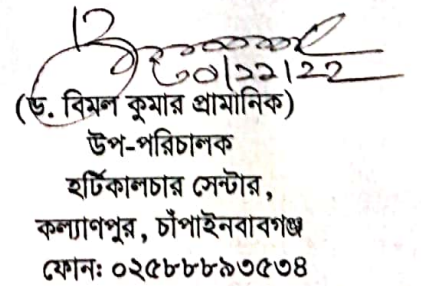 ৩০|১১|২২
(ড. বিমল কুমার প্রামানিক)
উপ-পরিচালক
হর্টিকালচার সেন্টার,
কল্যাণপুর, চাঁপাইনবাবগঞ্জ
ফোনঃ ০২৫৮৮৮৯৩৫৩৪